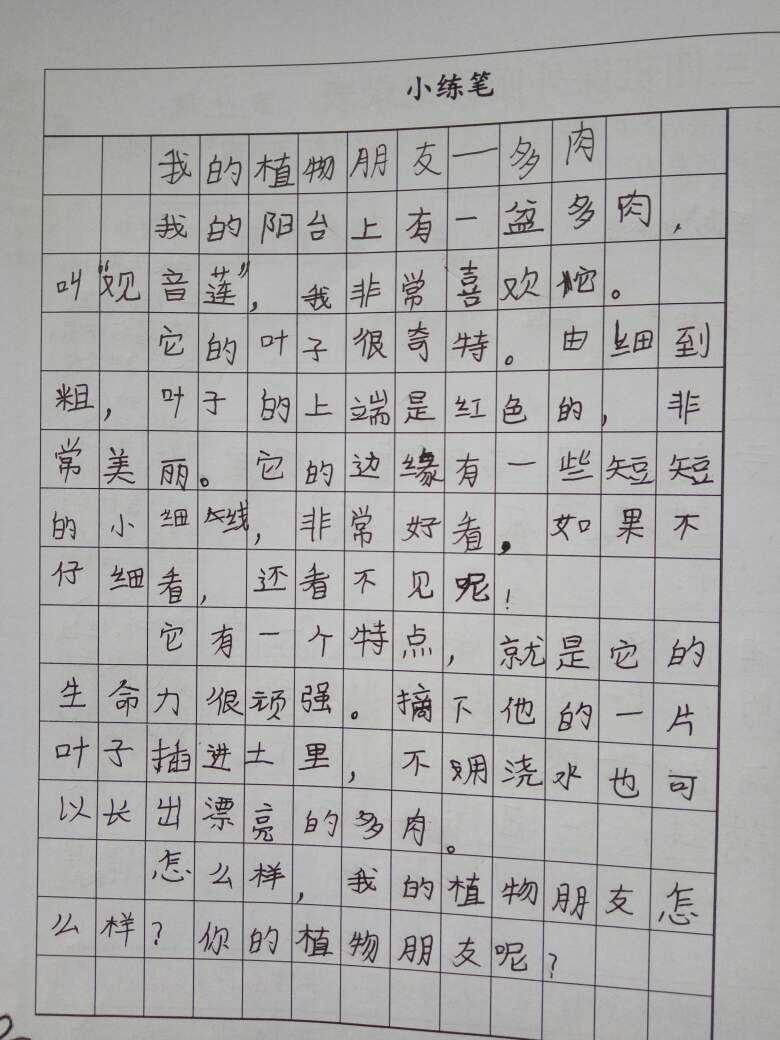 小练笔
我的植物朋友——多肉
我的阳台上有一盆多肉，
叫“观音莲”，我非常喜欢它。
它的叶子很奇特。由细到
粗，叶子的上端是红色的，非
常美丽。它的边缘有一些短短
的小细线，非常好看。如果不
仔细看，还看不见呢！
它有一个特点，就是它的
生命力很顽强。摘下他的一片
叶子插进土里，不用浇水也可
以长出漂亮的多肉。
怎么样，我的植物朋友怎
么样？你的植物朋友呢？